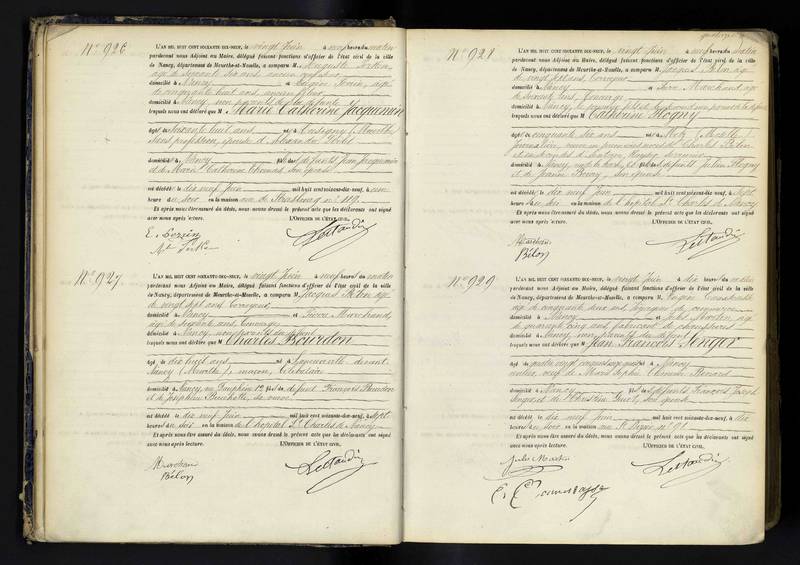 N° 926
L'AN MIL HUIT CENT SOIXANTE-DIX-NEUF, le vingt Juin à neuf heures du matin
pardevant nous Adjoint au Maire, délégué faisant fonctions d'officier de l'état civil de la ville
de Nancy, département de Meurthe-et-Moselle, a comparu M. Auguste
âgé de soixante dix ans, ancien
domicilié à Nancy et Eugène âgé
de cinquante huit ans, ancien
domicilié à Nancy, non parents de la défunte
lesquels nous ont déclaré que M Marie Catherine Jacquemin
âgée de soixante huit ans née à (Meurthe)
sans profession, épouse d'Alexandre
domiciliée à Nancy fille des défunts Jean Jacquemin
et de Marie Catherine Thomas son épouse
est décédée le dix neuf Juin mil huit cent soixante-dix-neuf, à une
heure du soir en la maison rue de Strasbourg n° 119
Et après nous être assuré du décès, nous avons dressé le présent acte que les déclarants ont signé
avec nous après lecture.
L'OFFICIER DE L'ÉTAT CIVIL,
N° 927
L'AN MIL HUIT CENT SOIXANTE-DIX-NEUF, le vingt Juin à neuf heures du matin
pardevant nous Adjoint au Maire, délégué faisant fonctions d'officier de l'état civil de la ville
de Nancy, département de Meurthe-et-Moselle, a comparu M. Jacques Belon âgé
de vingt sept ans,
domicilié à Nancy et Pierre Marchand,
âgé de soixante ans,
domicilié à Nancy, non parents du défunt
lesquels nous ont déclaré que M Charles Bourdon
âgé de dix huit ans né à Laneuveville devant
Nancy (Meurthe), maçon, célibataire
domicilié à Nancy, fils de défunt François Bourdon
et de Joséphine sa veuve
est décédé le dix neuf Juin mil huit cent soixante-dix-neuf, à sept
heures du soir en la maison de l'hôpital St Charles de Nancy
Et après nous être assuré du décès, nous avons dressé le présent acte que les déclarants ont signé
avec nous après lecture.
L'OFFICIER DE L'ÉTAT CIVIL,
Marchand
Bélon
N° 928
L'AN MIL HUIT CENT SOIXANTE-DIX-NEUF, le vingt Juin à neuf heures du matin
pardevant nous Adjoint au Maire, délégué faisant fonctions d'officier de l'état civil de la ville
de Nancy, département de Meurthe-et-Moselle, a comparu M. Jacques Belon âgé
de vingt sept ans,
domicilié à Nancy et Pierre Marchand âgé
de soixante ans,
domicilié à Nancy,
lesquels nous ont déclaré que M Catherine Hogny
âgée de cinquante six ans née à Metz (Moselle)
journalière, veuve en premières noces de Charles
domiciliée à Nancy, fille des défunts Hogny
et de Jeanne son épouse
est décédée le dix neuf Juin mil huit cent soixante-dix-neuf, à sept
heures du soir en la maison de l'hôpital St Charles de Nancy
Et après nous être assuré du décès, nous avons dressé le présent acte que les déclarants ont signé
avec nous après lecture.
L'OFFICIER DE L'ÉTAT CIVIL,
Marchand
Bélon
N° 929
L'AN MIL HUIT CENT SOIXANTE-DIX-NEUF, le vingt Juin à dix heures du matin
pardevant nous Adjoint au Maire, délégué faisant fonctions d'officier de l'état civil de la ville
de Nancy, département de Meurthe-et-Moselle, a comparu M. Eugène
âgé de cinquante deux ans, de commerce
domicilié à Nancy et Jules Martin âgé
de quarante cinq ans, fabricant de
domicilié à Nancy, non parents du défunt
lesquels nous ont déclaré que M Jean François
âgé de quatre vingt ans né à Nancy
veuf de Marie
domicilié à Nancy fils de défunts François Joseph
et de Christine son épouse
est décédé le dix neuf Juin mil huit cent soixante-dix-neuf, à dix
heures du soir en la maison rue St Dizier n° 91
Et après nous être assuré du décès, nous avons dressé le présent acte que les déclarants ont signé
avec nous après lecture.
L'OFFICIER DE L'ÉTAT CIVIL,
Jules Martin